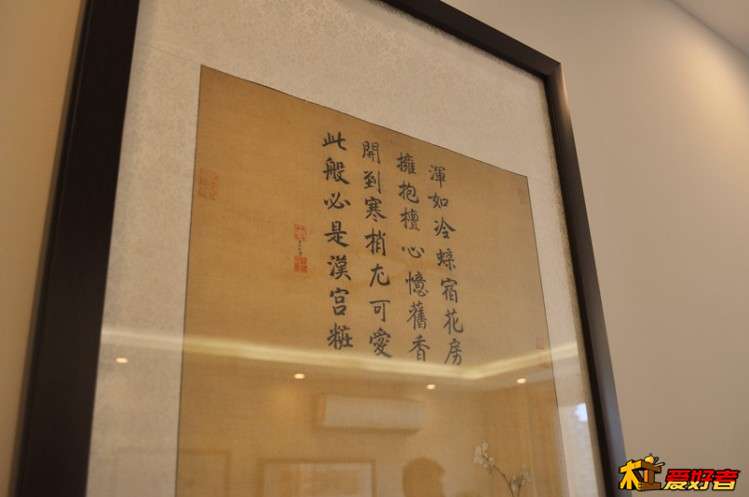 渾如冷蜨宿花房
擁抱檀心憶舊香
開到寒梢尤可愛
此般必是漢宮粧
木工爱好者